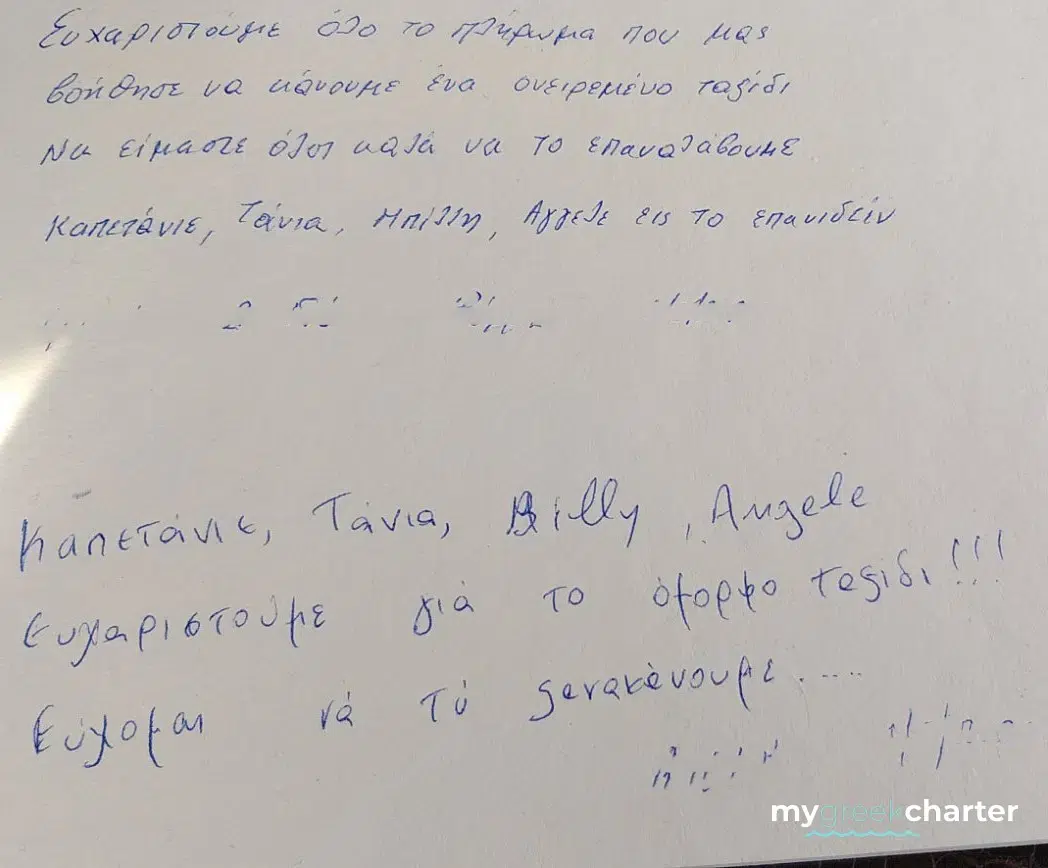 Ευχαριστούμε όλο το πλήρωμα που μας
βοήθησε να κάνουμε ένα ονειρεμένο ταξίδι
Να είμαστε όλοι καλά να το επαναλάβουμε
Καπετάνιε, Τάνια, Μπίλλη, Άγγελε εις το επανιδείν
Καπετάνιε, Τάνια, Billy, Angele
Ευχαριστούμε γιά το όμορφο ταξίδι!!!
Εύχομαι νά τό ξενακάνουμε.....
mygreekcharter